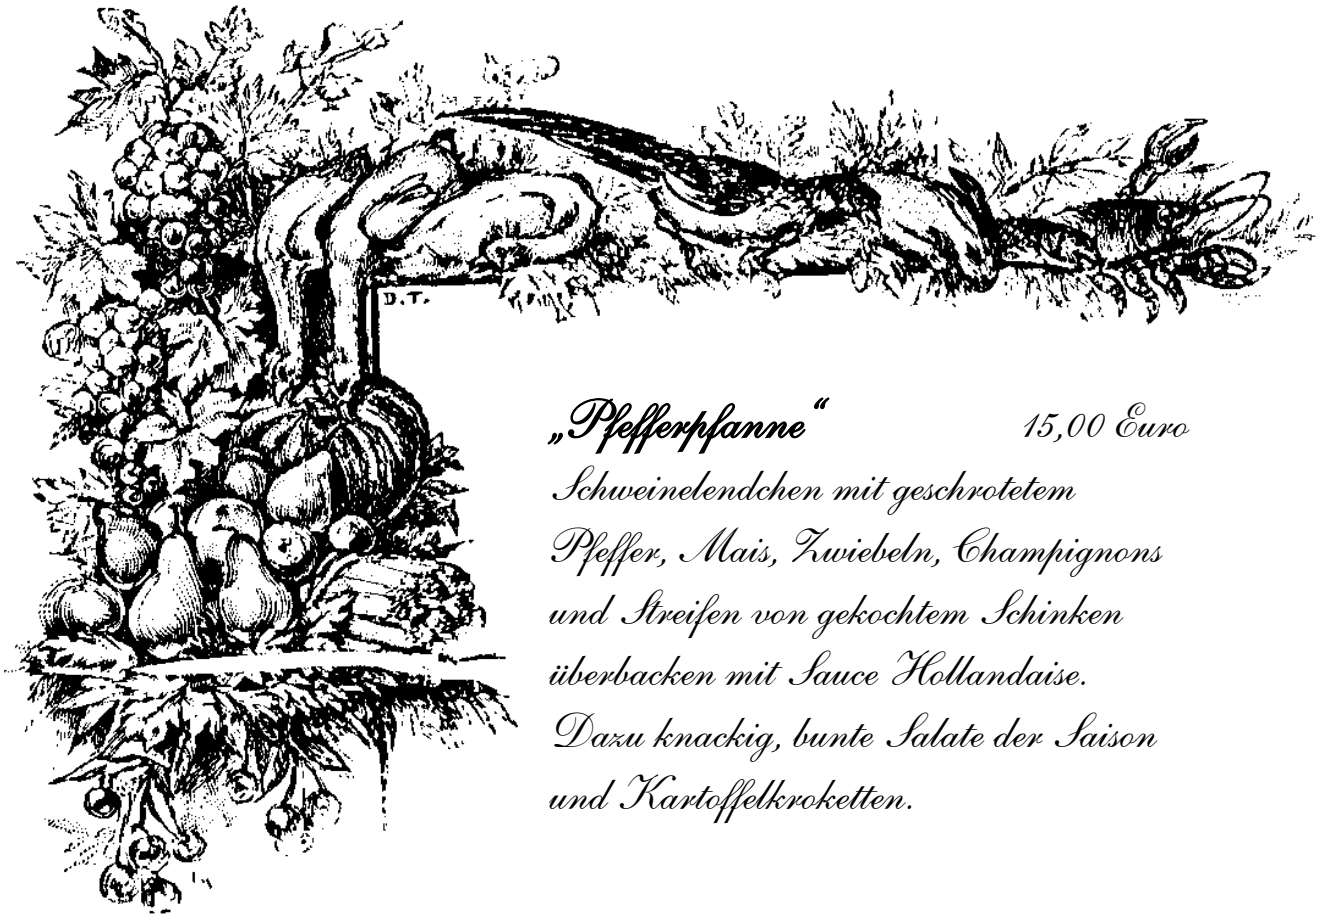 D.T.
„Pfefferpfanne“ 15,00 Euro
Schweinelendchen mit geschrotetem
Pfeffer, Mais, Zwiebeln, Champignons
und Streifen von gekochtem Schinken
überbacken mit Sauce Hollandaise.
Dazu knackig, bunte Salate der Saison
und Kartoffelkroketten.